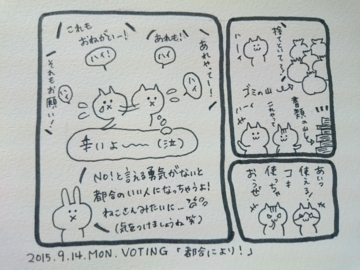 これも
おねがいー!
あれも!
あれやってー!
それもお願い!
ハイ!
ハイ
ハイ!
ハイ
辛いよ〜〜(泣)
NO!と言える勇気がないと
都合のいい人になっちゃうよ!
ねこさんみたいに…
(気をつけましょうね笑)
捨てといてー!
ハーイ
ゴミの山
書類の山
これやって
ハイ
あいつ
使えるな
コキ
使っちゃ
おうぜ
2015.9.14.MON.VOTING「都合により!」